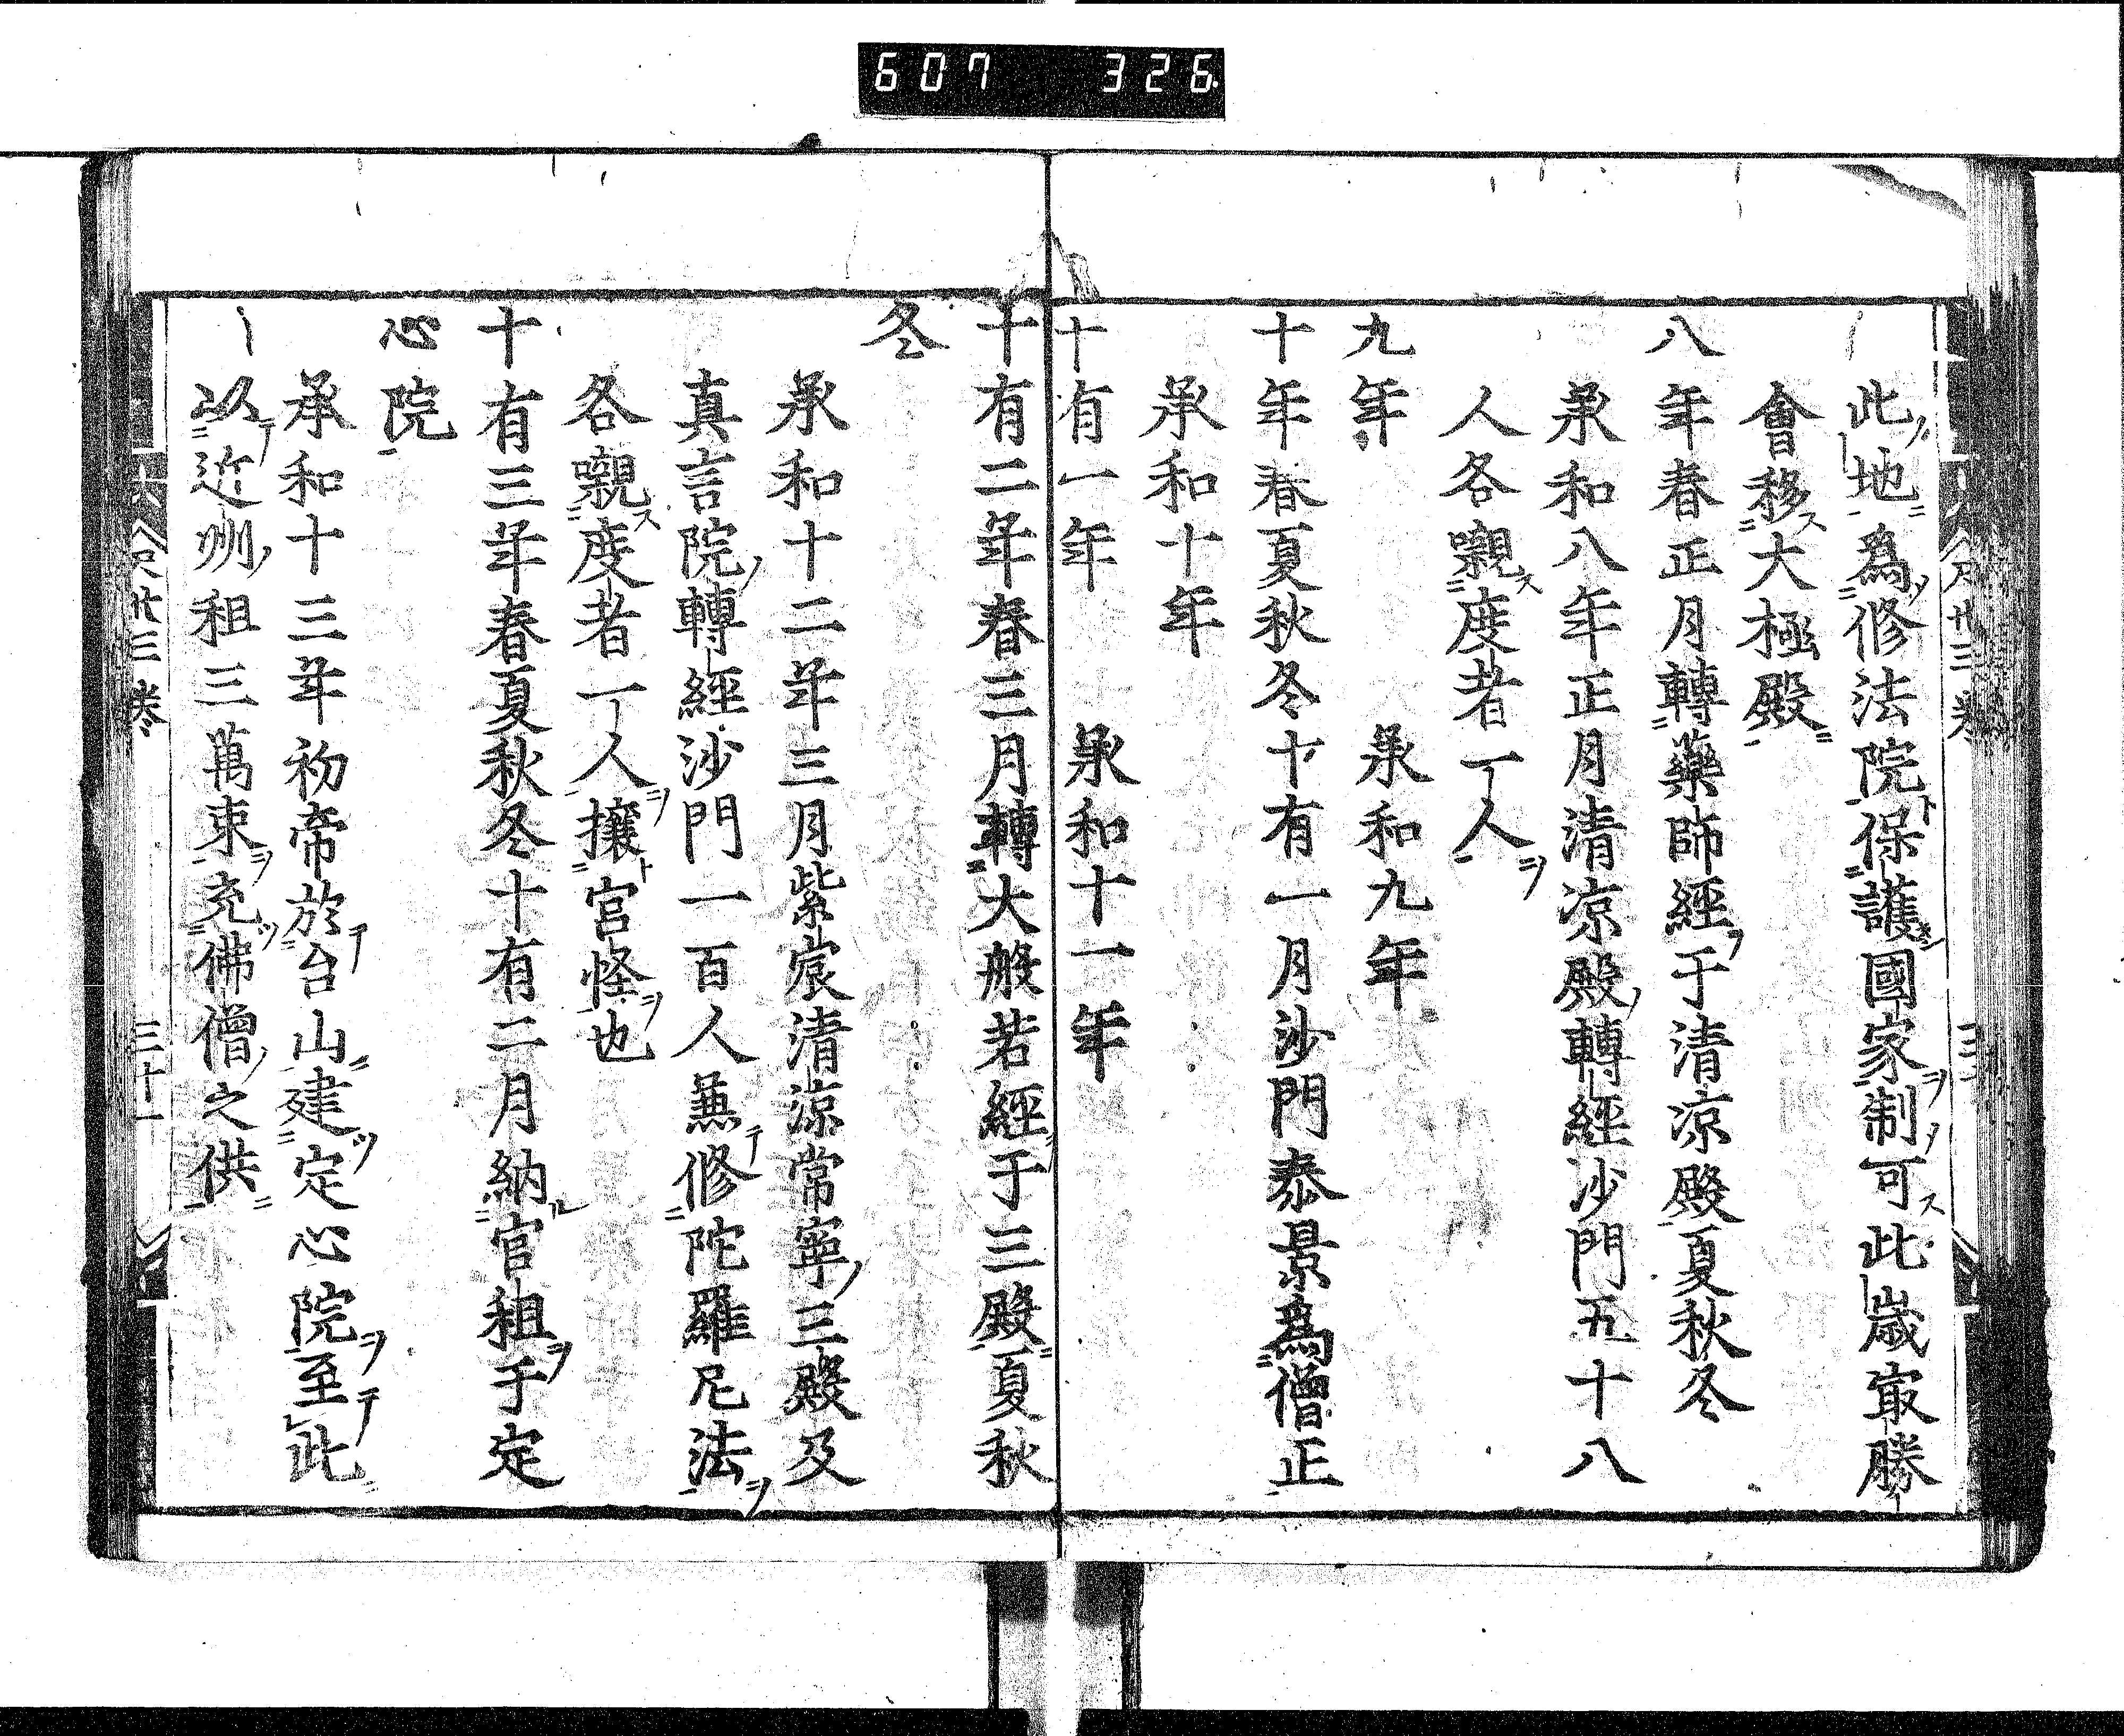 607 326
此地為修法院保護國家制可此歲㝡勝
會移大極殿
八年春正月轉藥師經于清凉殿夏秋冬
承和八年正月清凉殿轉經沙門五十八
人各嚫度者一人
九年 承和九年
十年春夏秋冬十有一月沙門泰景為僧正
承和十年
十有一年 承和十一年
十有二年春三月轉大般若經于三殿夏秋
冬
承和十二年三月紫宸清凉常寧三殿及
真言院轉經沙門一百人兼修陀羅尼法
各嚫度者一人攘宮怪也
十有三年春夏秋冬十有二月納官租于定
心院
承和十三年初帝於台山建定心院至此
以近州租三萬束充佛僧之供
廿三卷 三十一